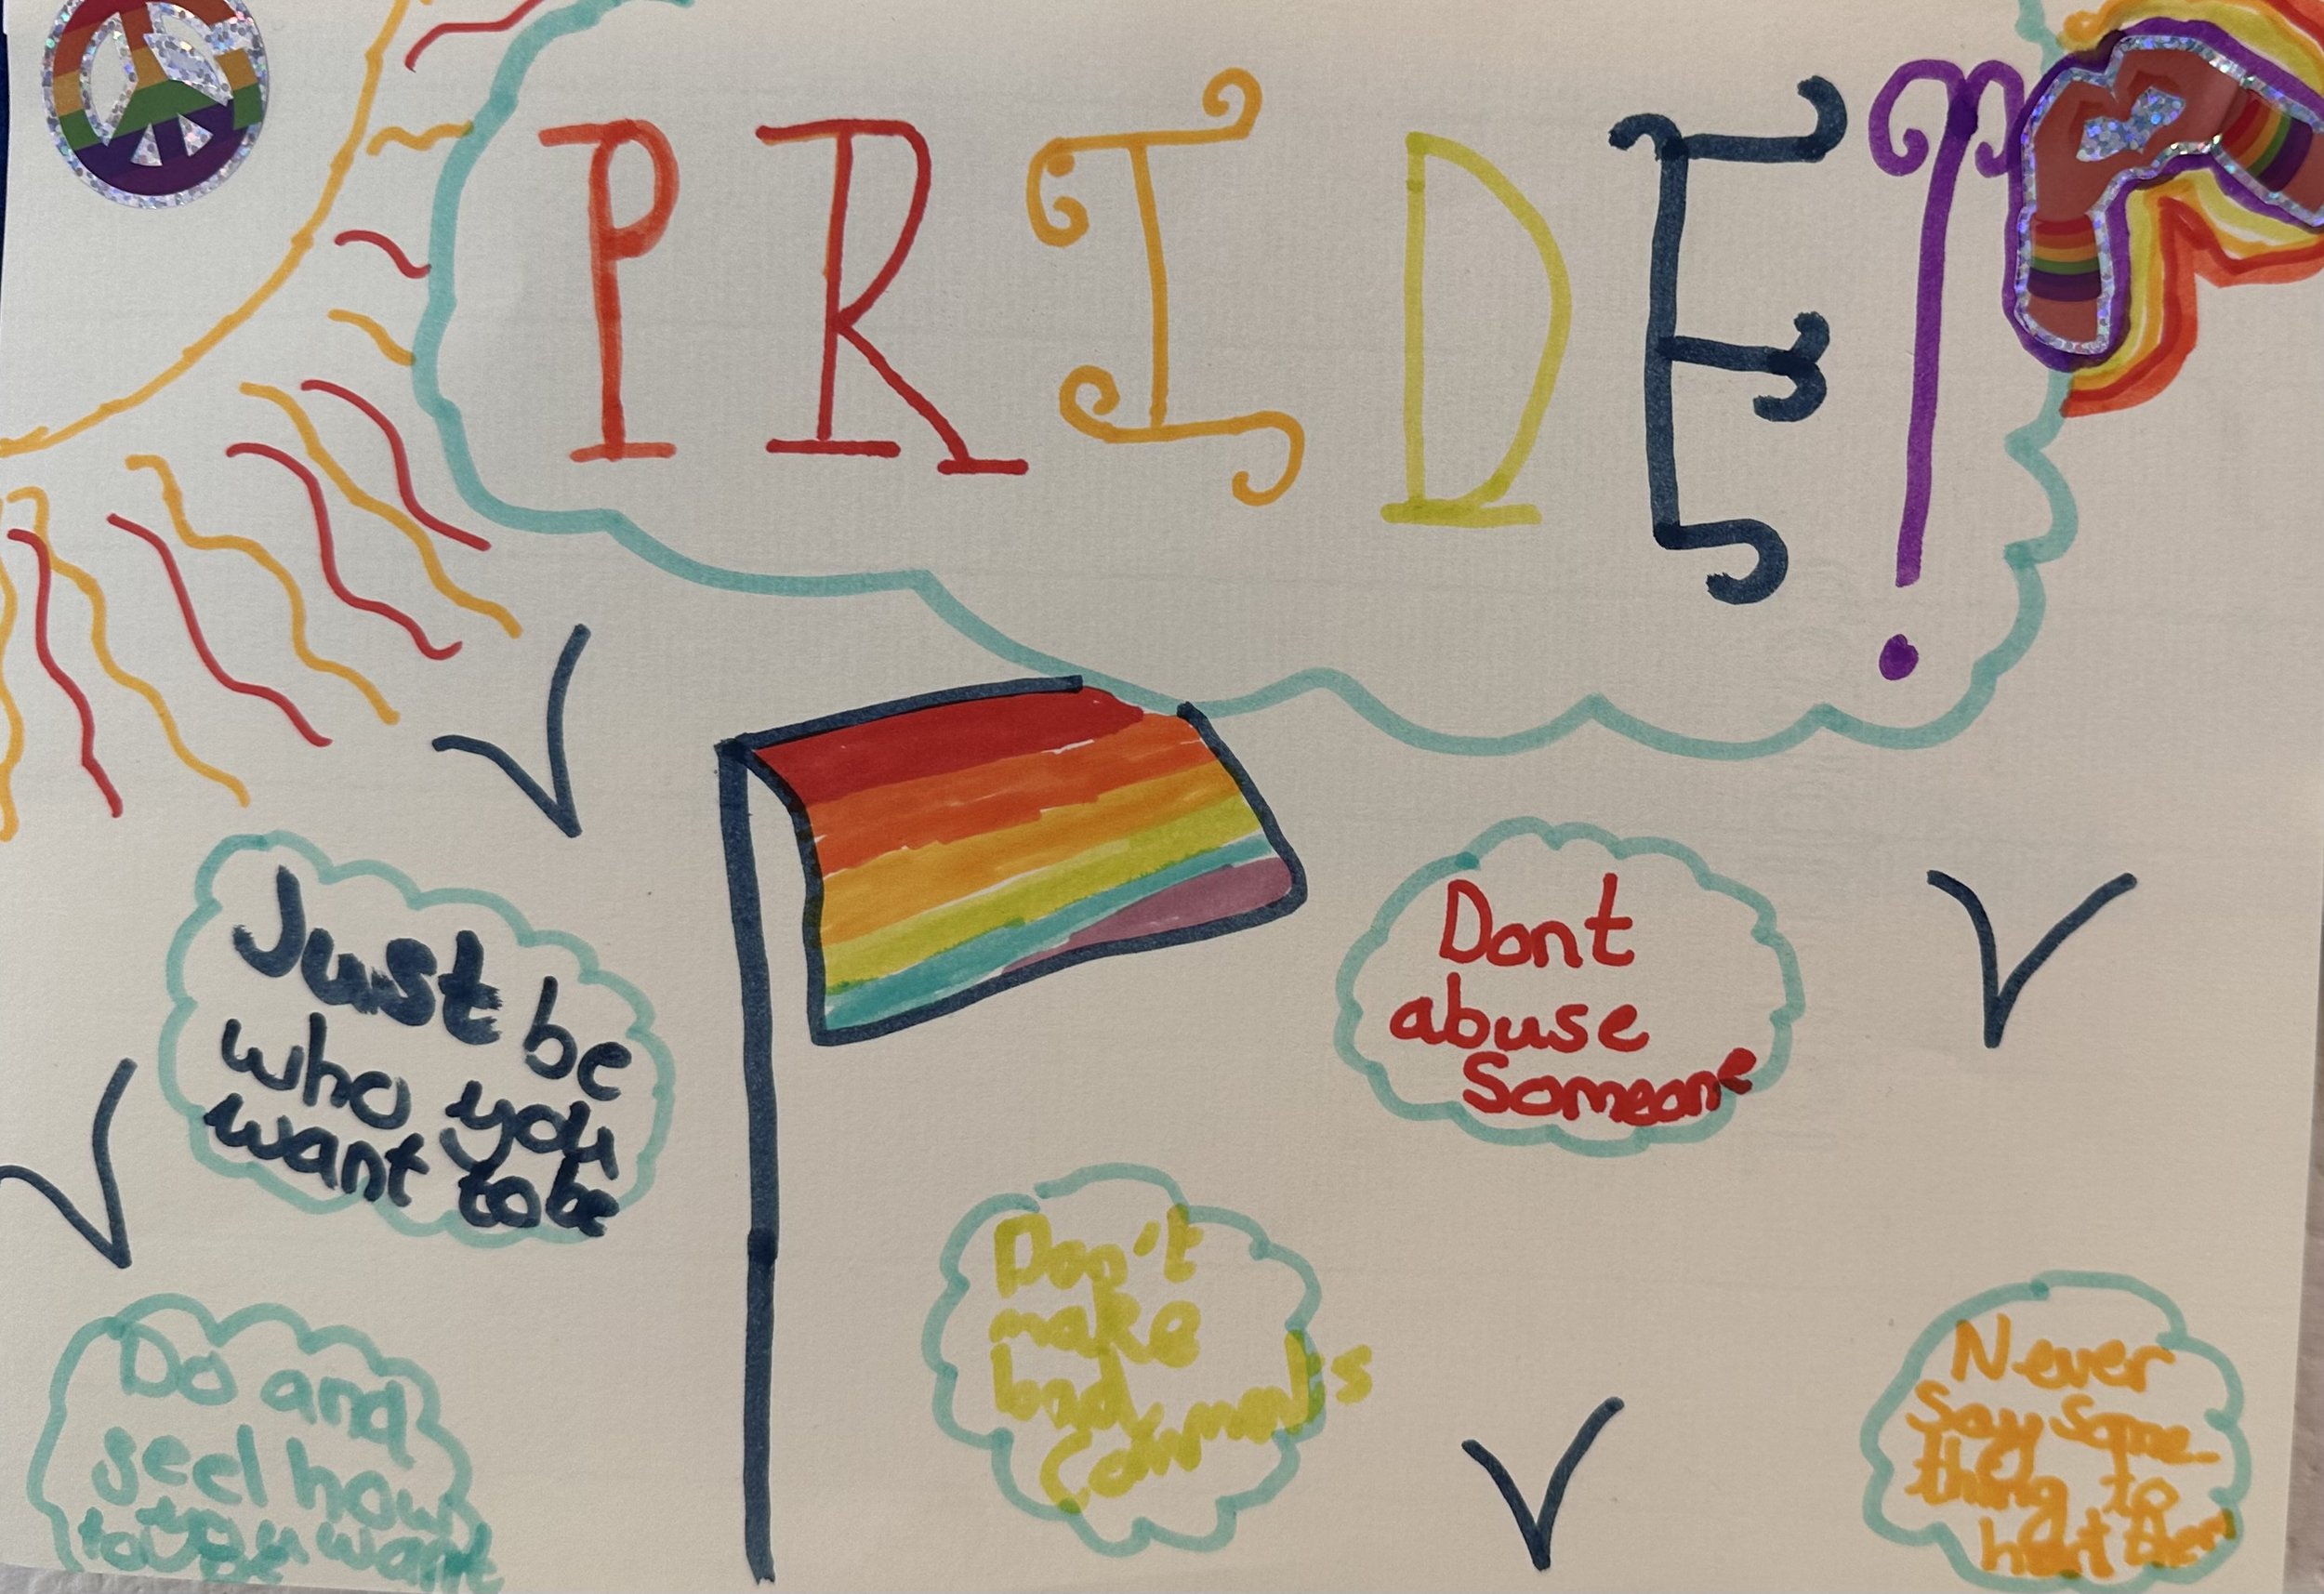 PRIDE!
Just be
who you
want to be
Dont
abuse
Someone
Don't
make
bad
Comments
Never
say some-
thing to
hurt them
Do and
feel how
you want
to be